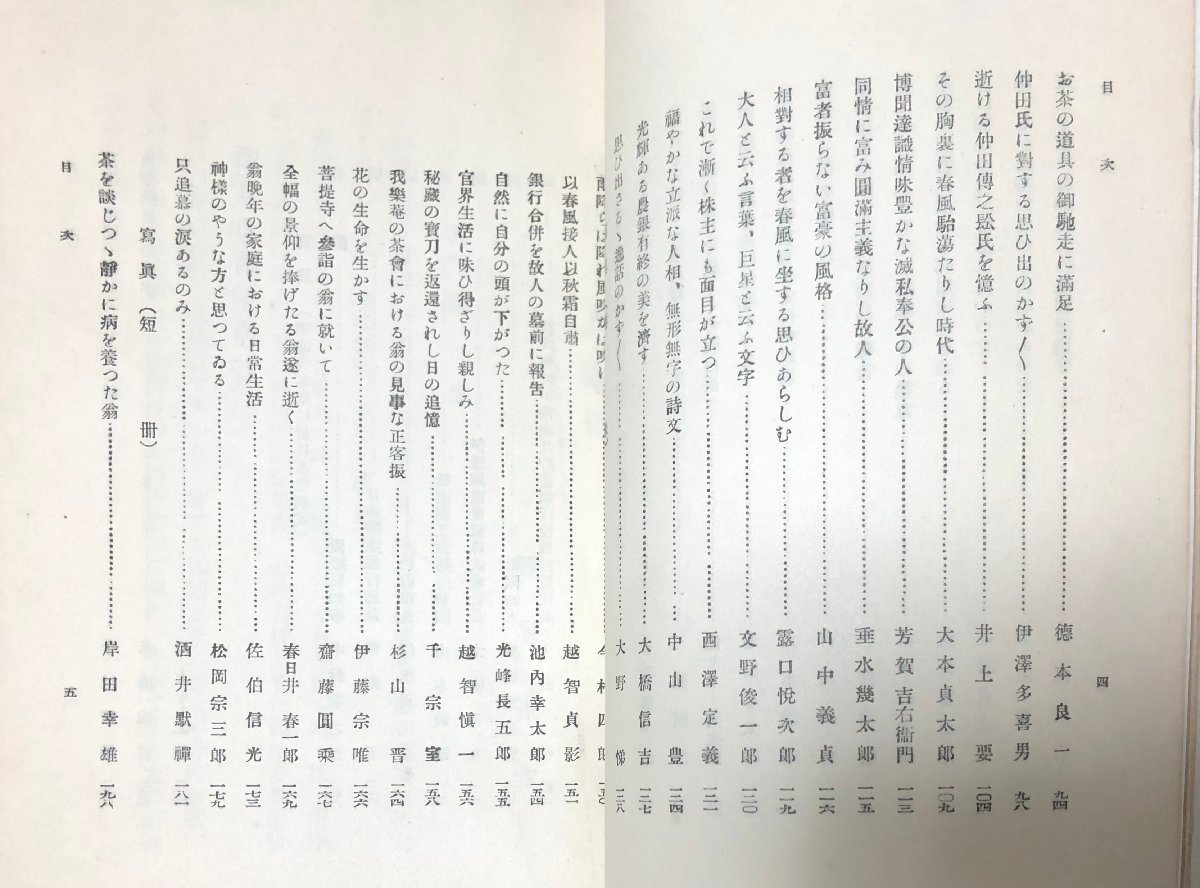 目次
四
お茶の道具の御馳走に滿足……德本良一 九四
仲田氏に對する思ひ出のかず〱……伊澤多喜男 九八
逝ける仲田傳之㐂氏を憶ふ……井上要 一〇四
その胸裏に春風駘蕩たりし時代……大本貞太郎 一〇九
博聞達識情味豐かな滅私奉公の人……芳賀吉右衞門 一一三
同情に富み圓滿主義なりし故人……垂水幾太郎 一一五
富者振らない富豪の風格……山中義貞 一一六
相對する者を春風に坐する思ひあらしむ……露口悅次郎 一一九
大人と云ふ言葉、巨星と云ふ文字……文野俊一郎 一二〇
これで漸く株主にも面目が立つ……西澤定義 一二一
福やかな立派な人相、無形無字の詩文……中山豐 一二四
光輝ある農銀有終の美を濟す……大橋信吉 一二七
思ひ出さるゝ逸話のかず〱……大野悌 一二八
以春風接人以秋霜自肅……越智貞影 一五一
銀行合併を故人の墓前に報告……池內幸太郎 一五四
自然に自分の頭が下がつた……光峰長五郎 一五五
官界生活に味ひ得ざりし親しみ……越智愼一 一五六
秘藏の寶刀を返還されし日の追憶……千宗室 一五八
我樂菴の茶會における翁の見事な正客振……杉山晋 一六四
花の生命を生かす……伊藤宗唯 一六六
菩提寺へ參詣の翁に就いて……齋藤圓乘 一六七
全幅の景仰を捧げたる翁遂に逝く……春日井春一郎 一六九
翁晚年の家庭における日常生活……佐伯信光 一七三
神樣のやうな方と思つてゐる……松岡宗三郎 一七九
只追慕の淚あるのみ……酒井默禪 一八一
寫眞(短冊)
茶を談じつゝ靜かに病を養つた翁……岸田幸雄 一九八
目次
五